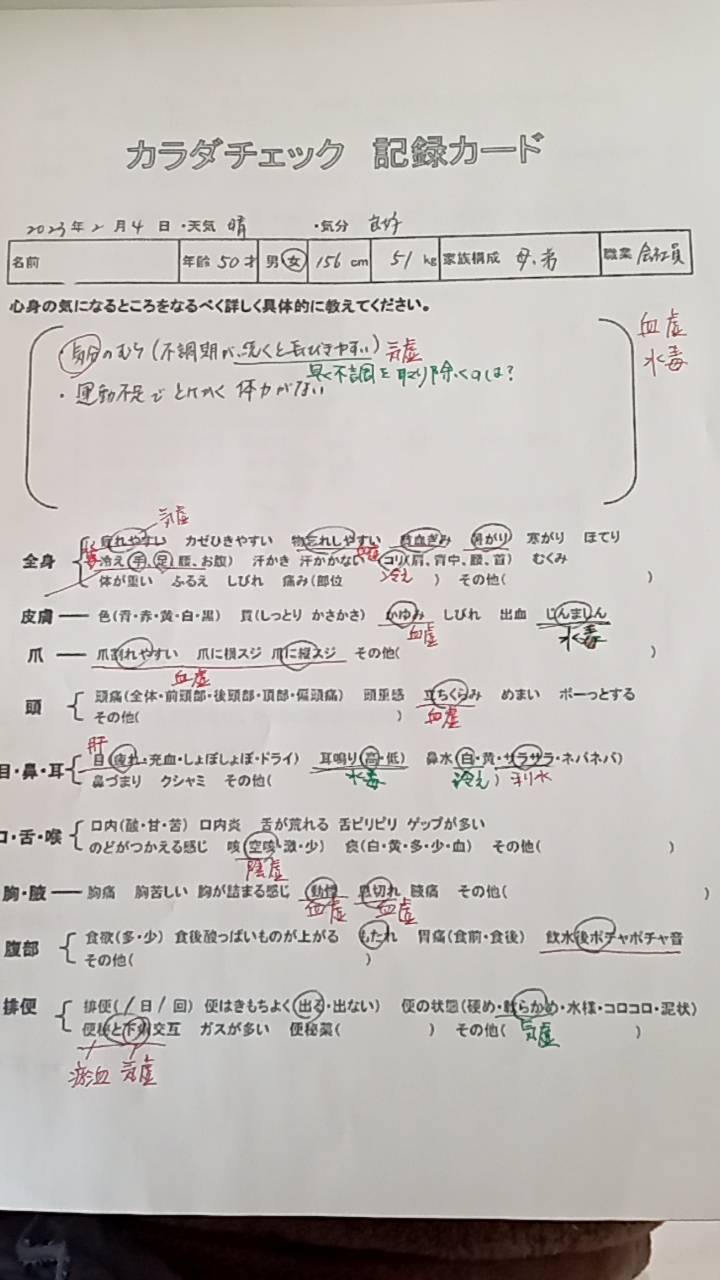 カラダチェック 記録カード
2023年2月4日・天気 晴 ・気分 良好
名前 年齢 50才 男・女 156cm 51kg 家族構成 母、弟 職業 会社員
心身の気になるところをなるべく詳しく具体的に教えてください。
血虚
水毒
・気分のむら(不調期が続くと長びきやすい) 気虚
早く不調を取り除くのは?
・運動不足でとにかく体力がない
気虚
疲れやすい カゼひきやすい 物忘れしやすい 貧血ぎみ 寒がり ほてり
全身 冷え(手、足、腰、お腹) 汗かき 汗かかない コリ(肩、背中、腰、首) むくみ
体が重い ふるえ しびれ 痛み(部位 冷え ) その他( )
皮膚 色(青・赤・黄・白・黒) 質(しっとり かさかさ) かゆみ しびれ 出血 じんましん
血虚 水毒
爪 爪割れやすい 爪に横スジ 爪に縦スジ その他( )
血虚
頭 頭痛(全体・前頭部・後頭部・頂部・偏頭痛) 頭重感 立ちくらみ めまい ボーっとする
その他( ) 血虚
肝
目・鼻・耳 目(疲れ・充血・しょぼしょぼ・ドライ) 耳鳴り(高・低) 鼻水(白・黄・サラサラ・ネバネバ)
鼻づまり クシャミ その他( 水毒 冷え ) 利水
口・舌・喉 口内(酸・甘・苦) 口内炎 舌が荒れる 舌ピリピリ ゲップが多い
のどがつかえる感じ 咳(空咳・激・少) 痰(白・黄・多・少・血) その他( )
陰虚
胸・脇 胸痛 胸苦しい 胸が詰まる感じ 動悸 息切れ 脇痛 その他( )
血虚 血虚
腹部 食欲(多・少) 食後酸っぱいものが上がる もたれ 胃痛(食前・食後) 飲水後ポチャポチャ音
その他( )
排便 排便(1日1回) 便はきもちよく(出る・出ない) 便の状態(硬め・軟らかめ・水様・コロコロ・泥状)
便秘と下痢交互 ガスが多い 便秘薬( ) その他( 気虚 )
瘀血 気虚